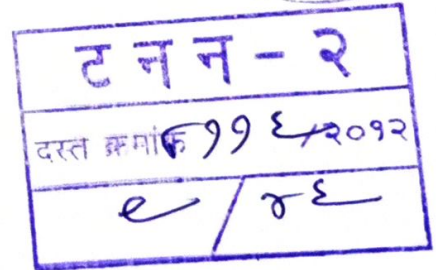 टनन - २
दस्त क्रमांक ८११६/२०१२
९/४६